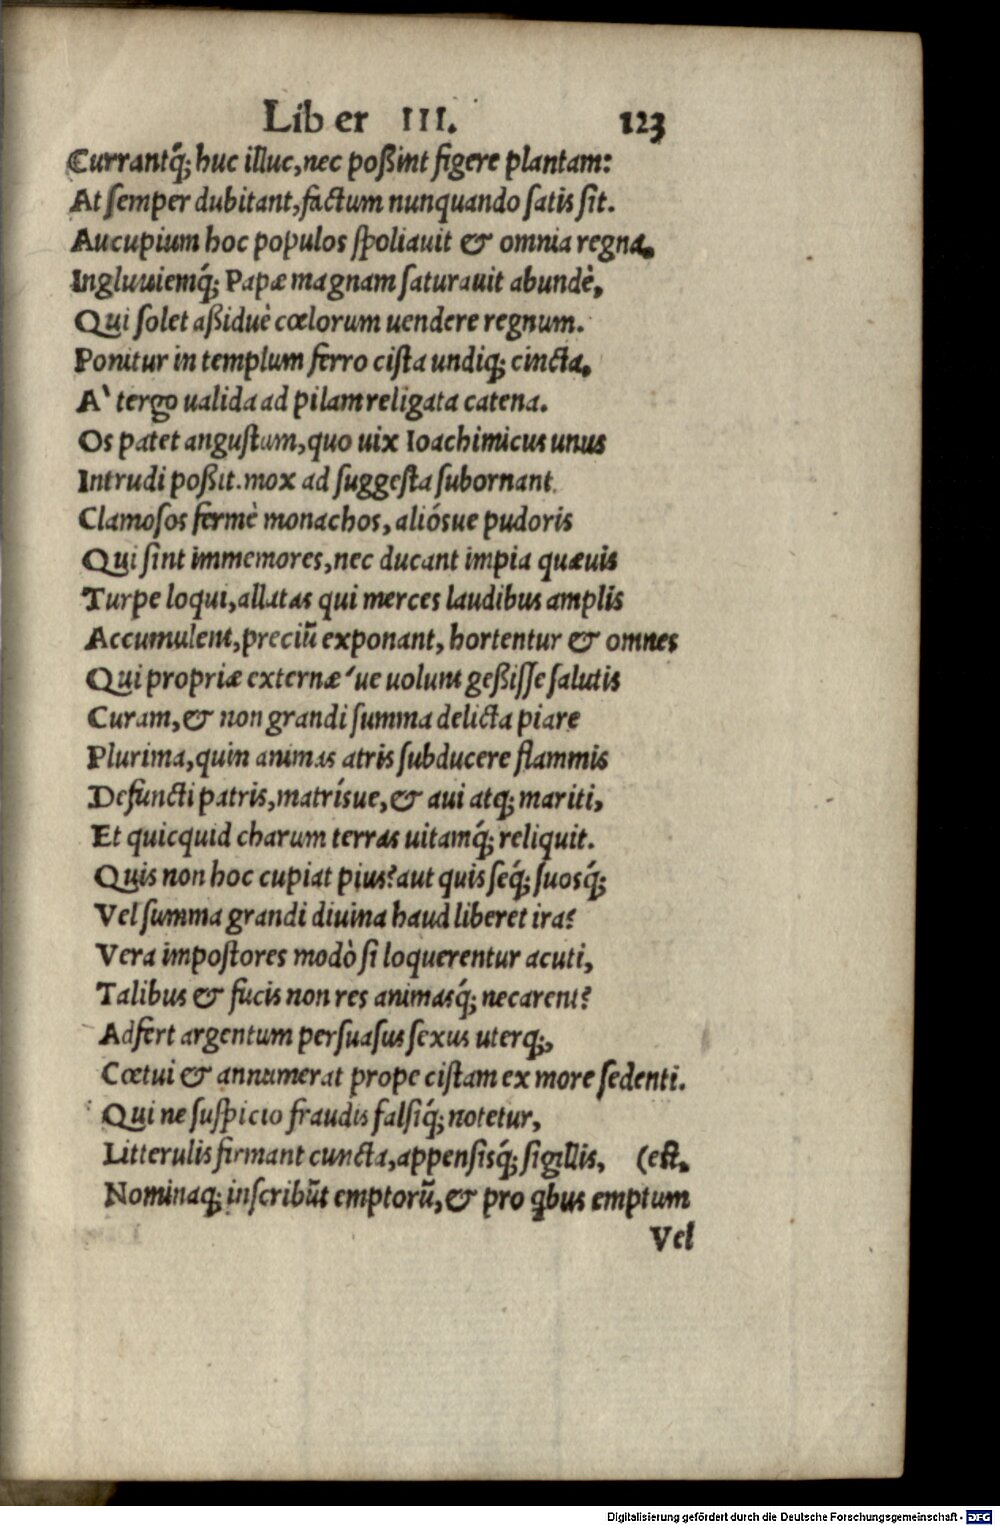 Liber III. 123
Currantq́; huc illuc, nec poßint figere plantam:
At semper dubitant, factum nunquando satis sit.
Aucupium hoc populos spoliauit & omnia regna,
Ingluuiemq́; Papæ magnam saturauit abundè,
Qui solet aßiduè cœlorum uendere regnum.
Ponitur in templum ferro cista undiq; cincta,
A` tergo ualida ad pilam religata catena.
Os patet angustum, quo uix Ioachimicus unus
Intrudi poßit. mox ad suggesta subornant
Clamosos fermè monachos, aliósue pudoris
Qui sint immemores, nec ducant impia quæuis
Turpe loqui, allatas qui merces laudibus amplis
Accumulent, preciũ exponant, hortentur & omnes
Qui propriæ externæ´ue uolunt geßisse salutis
Curam, & non grandi summa delicta piare
Plurima, quin animas atris subducere flammis
Defuncti patris, matrísue, & aui atq; mariti,
Et quicquid charum terras uitamq́; reliquit.
Quis non hoc cupiat pius? aut quis seq́; suosq́;
Vel summa grandi diuina haud liberet ira?
Vera impostores modò si loquerentur acuti,
Talibus & fucis non res animasq́; necarent?
Adfert argentum persuasus sexus uterq;,
Cœtui & annumerat prope cistam ex more sedenti.
Qui ne suspicio fraudis falsiq́; notetur,
Litterulis firmant cuncta, appensisq́; sigillis, (est,
Nominaq; inscribũt emptorũ, & pro qbus emptum
Vel
Digitalisierung gefördert durch die Deutsche Forschungsgemeinschaft - DFG